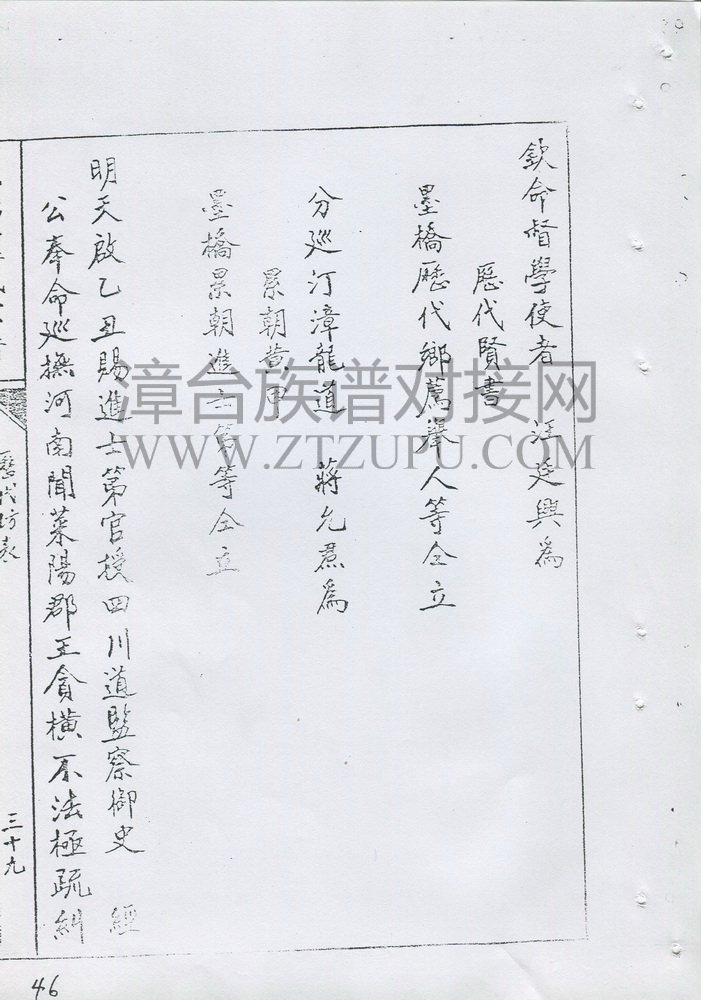 欽命督學使者 汪廷興為
歷代賢書
墨橋歷代鄉薦舉人等仝立
分巡汀漳龍道 蔣允焄為
累朝黃甲
墨橋累朝進士第等仝立
明天啟乙丑賜進士第官授四川道監察御史 經
公奉命巡撫河南聞萊陽郡王貪橫不法極疏糾
歷代坊表
三十九
46
漳台族谱对接网
WWW.ZTZUPU.COM